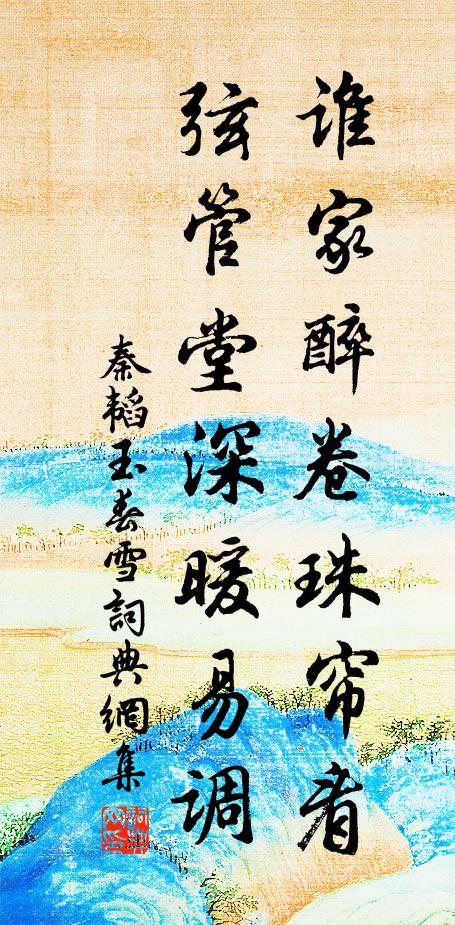 谁家醉卷珠帘看
弦管堂深暖易调
秦韬玉春雪詞典網集